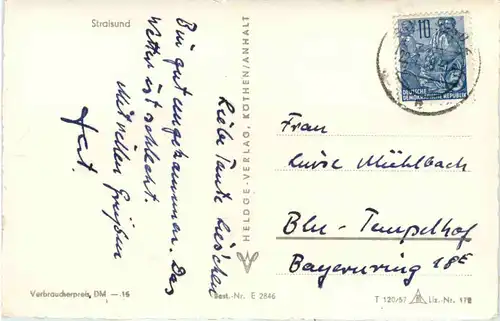 Stralsund
Liebe Tante Lieschen
Bin gut angekommen. Das
Wetter ist schlecht.
Mit vielen Grüßen
HELDGE-VERLAG, KÖTHEN/ANHALT
10
DEUTSCHE
DEMOKRATISCHE REPUBLIK
Frau
Luise Mühlbach
Bln-Tempelhof
Bayernring 18E
Verbraucherpreis, DM —.15
Best.-Nr. E 2846
T 120/57
Liz.-Nr. 172